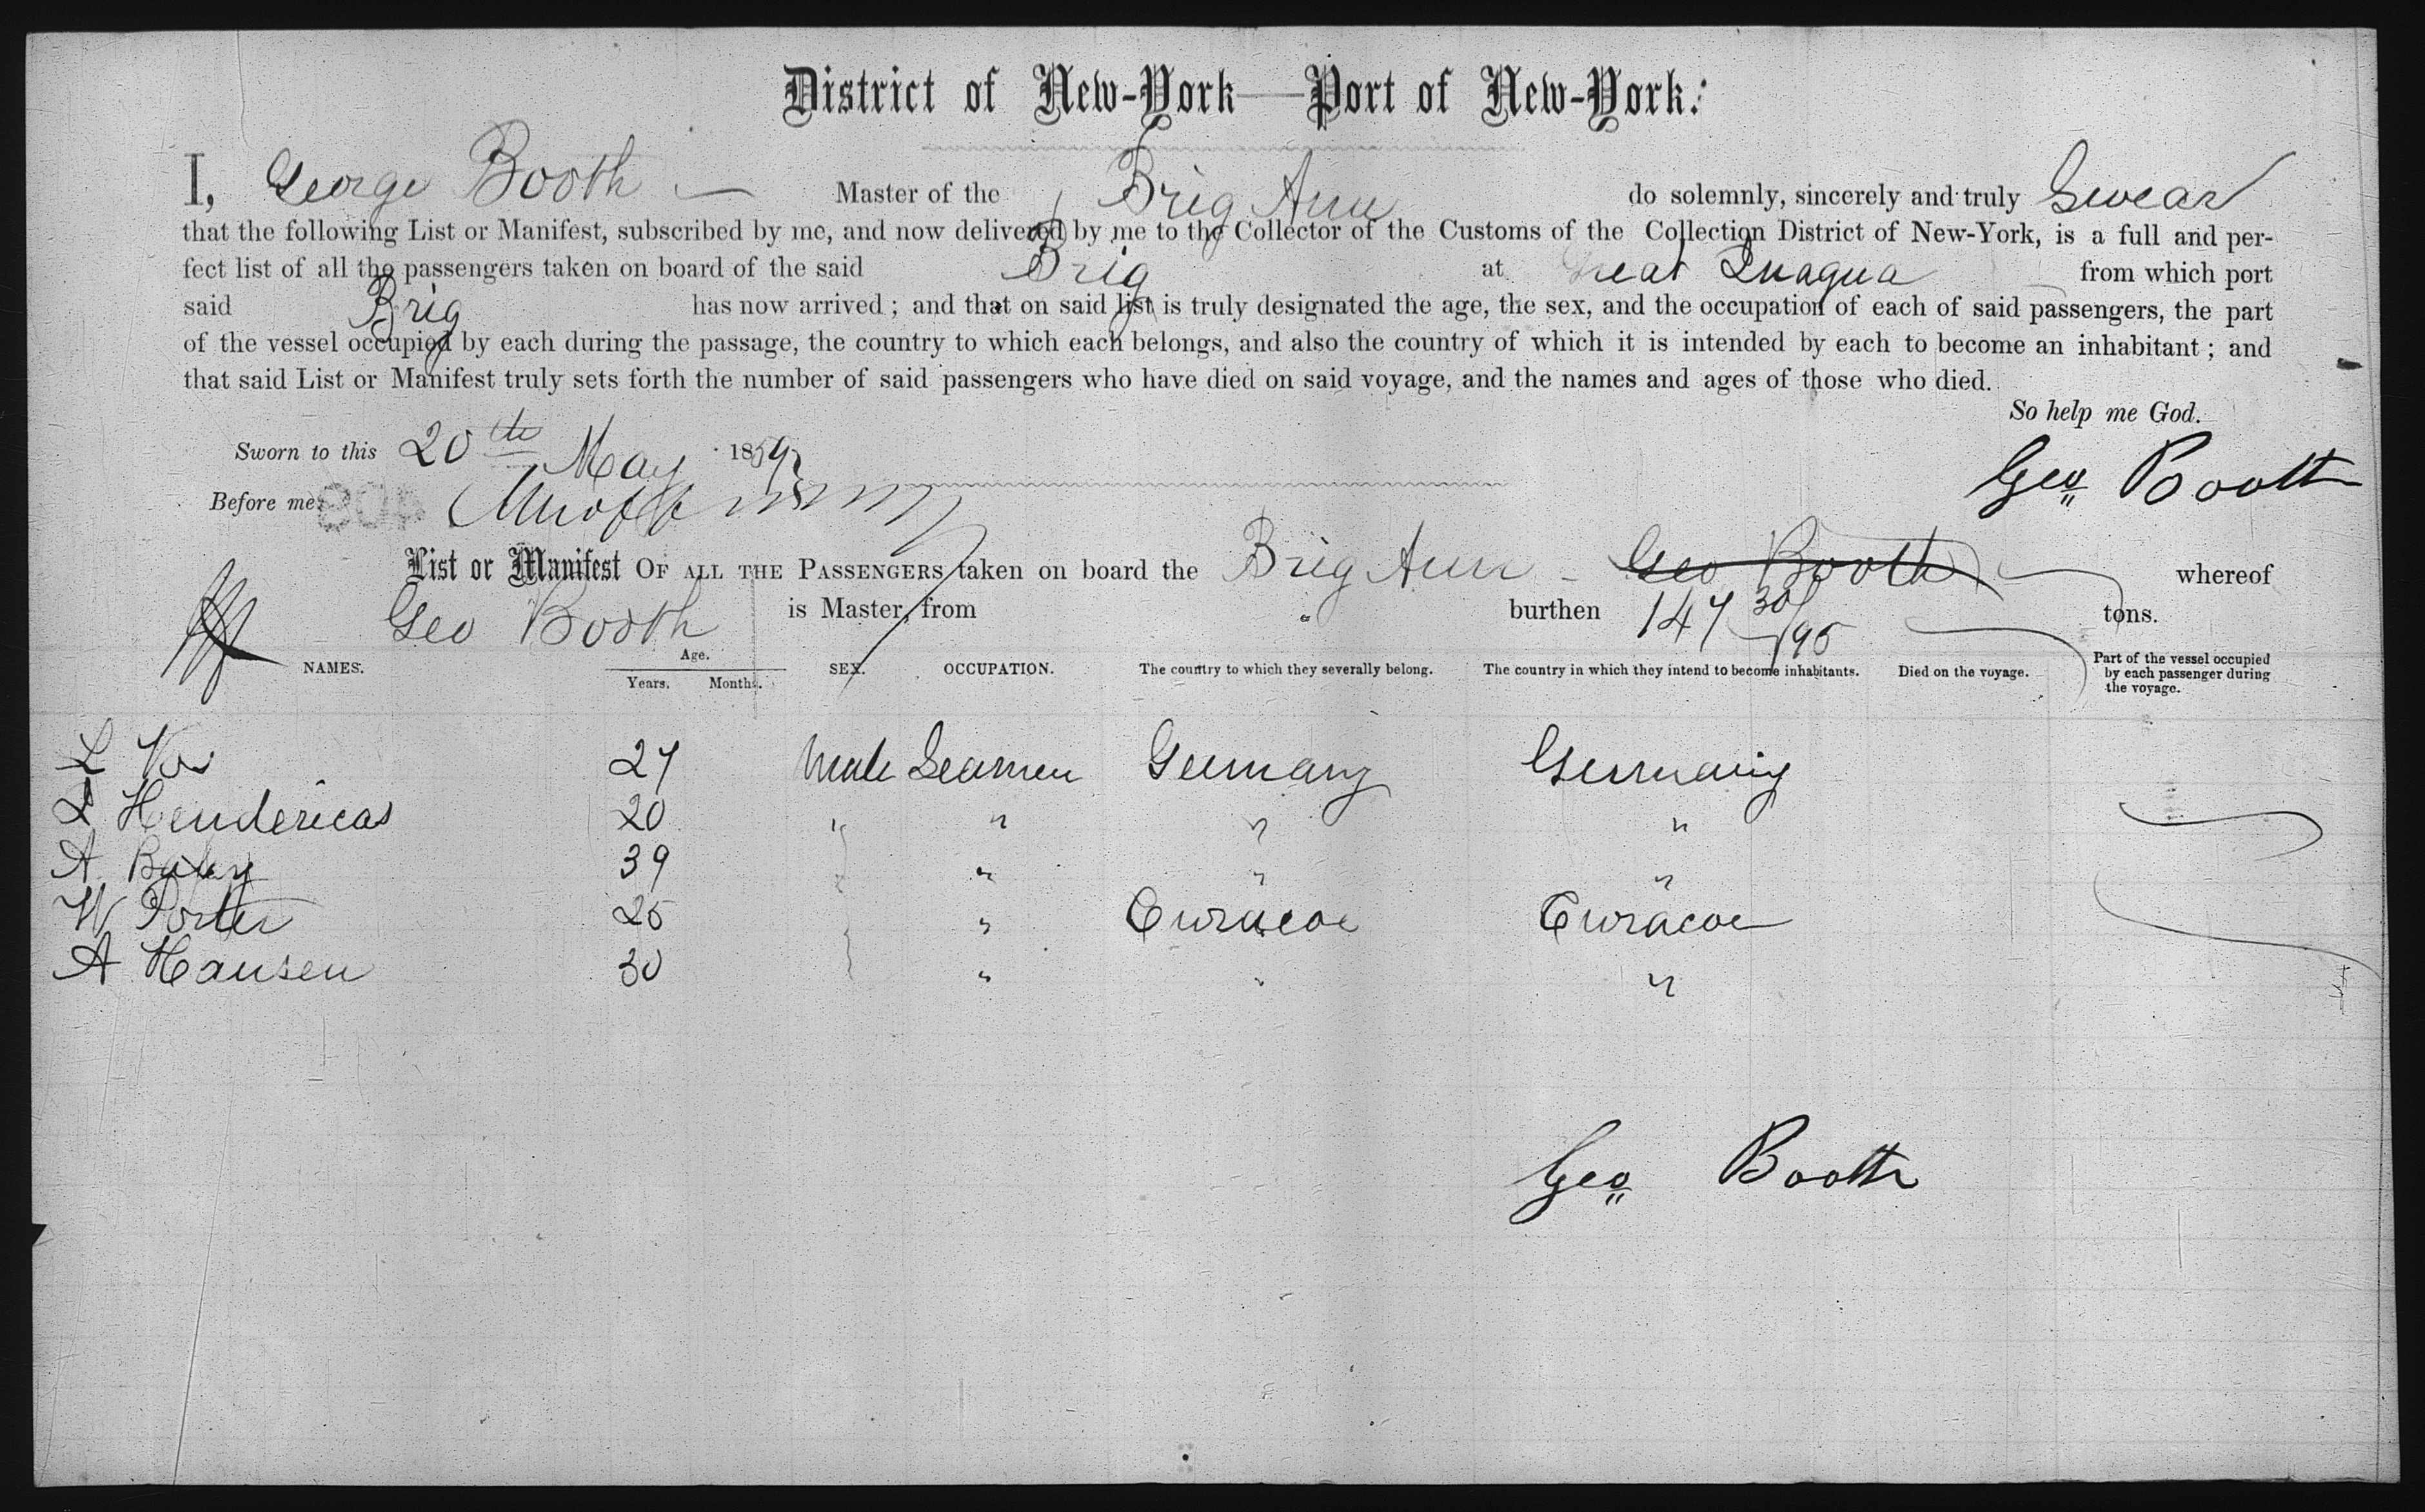 District of New-York—Port of New-York:
I, George Booth — Master of the Brig Ann do solemnly, sincerely and truly Swear
that the following List or Manifest, subscribed by me, and now delivered by me to the Collector of the Customs of the Collection District of New-York, is a full and per-
fect list of all the passengers taken on board of the said Brig at Great Inagua from which port
said Brig has now arrived; and that on said list is truly designated the age, the sex, and the occupation of each of said passengers, the part
of the vessel occupied by each during the passage, the country to which each belongs, and also the country of which it is intended by each to become an inhabitant; and
that said List or Manifest truly sets forth the number of said passengers who have died on said voyage, and the names and ages of those who died.
So help me God.
Sworn to this 20th May 1859
Geo Booth
Before me
List or Manifest OF ALL THE PASSENGERS taken on board the Brig Ann - Geo Booth whereof
Geo Booth is Master, from " burthen 147 30/95 tons.
NAMES. Age. Years. Months. SEX. OCCUPATION. The country to which they severally belong. The country in which they intend to become inhabitants. Died on the voyage. Part of the vessel occupied by each passenger during the voyage.
L 27 Male Seamen Germany Germany
L Hendericas 20 " " " "
A 39 " " " "
W Porter 25 " Curacoe Curacoe
A Hansen 30 " " "
Geo Booth